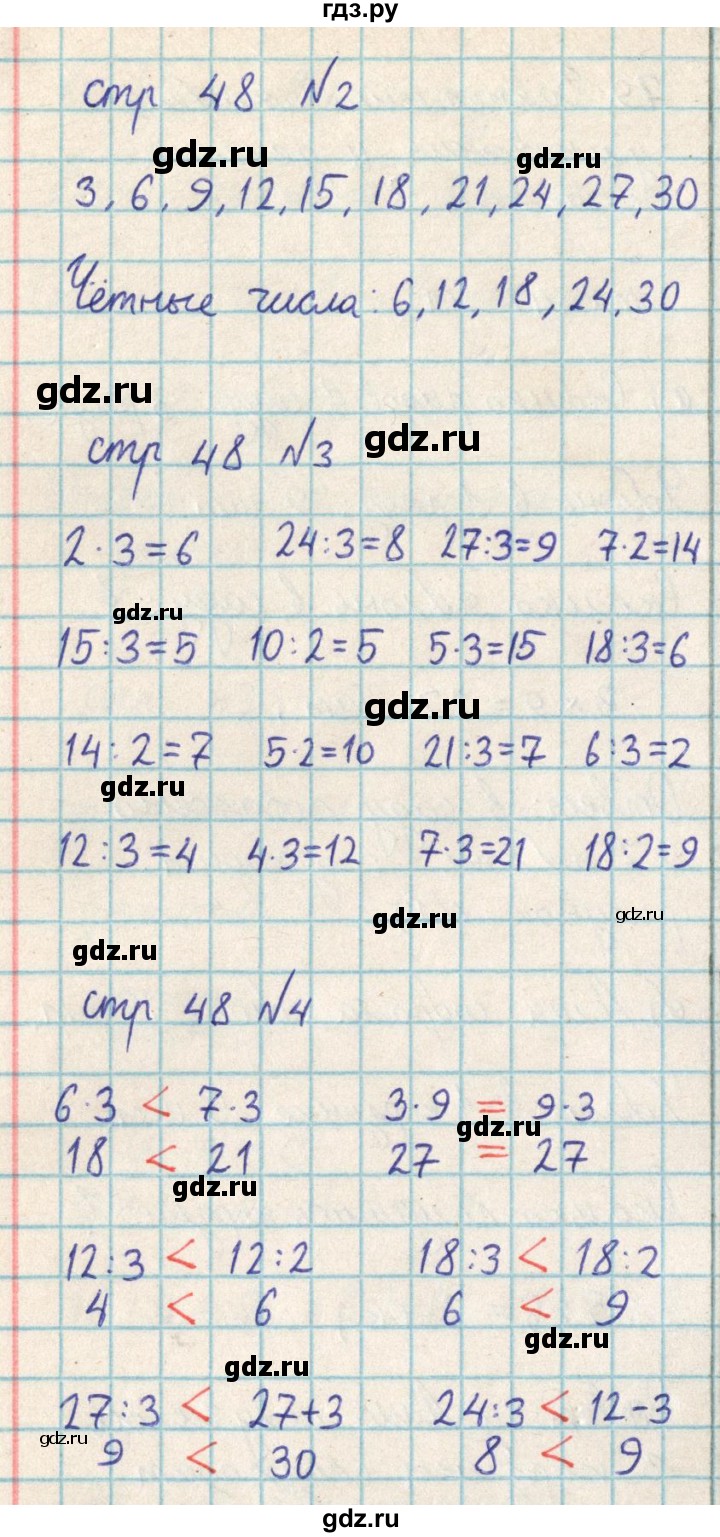 гдз.ру
стр 48 №2
gdz.ru gdz.ru
3, 6, 9, 12, 15, 18, 21, 24, 27, 30
Чётные числа: 6, 12, 18, 24, 30
gdz.ru
gdz.ru
стр 48 №3
2·3=6 24:3=8 27:3=9 7·2=14
gdz.ru
15:3=5 10:2=5 5·3=15 18:3=6
gdz.ru
14:2=7 5·2=10 21:3=7 6:3=2
gdz.ru
12:3=4 4·3=12 7·3=21 18:2=9
gdz.ru gdz.ru
gdz.ru
стр 48 №4
6·3 < 7·3 3·9 = 9·3
gdz.ru
18 < 21 27 = 27
gdz.ru
12:3 < 12:2 18:3 < 18:2
4 < 6 6 < 9
gdz.ru
gdz.ru
27:3 < 27+3 24:3 < 12-3
gdz.ru
9 < 30 8 < 9
gdz.ru